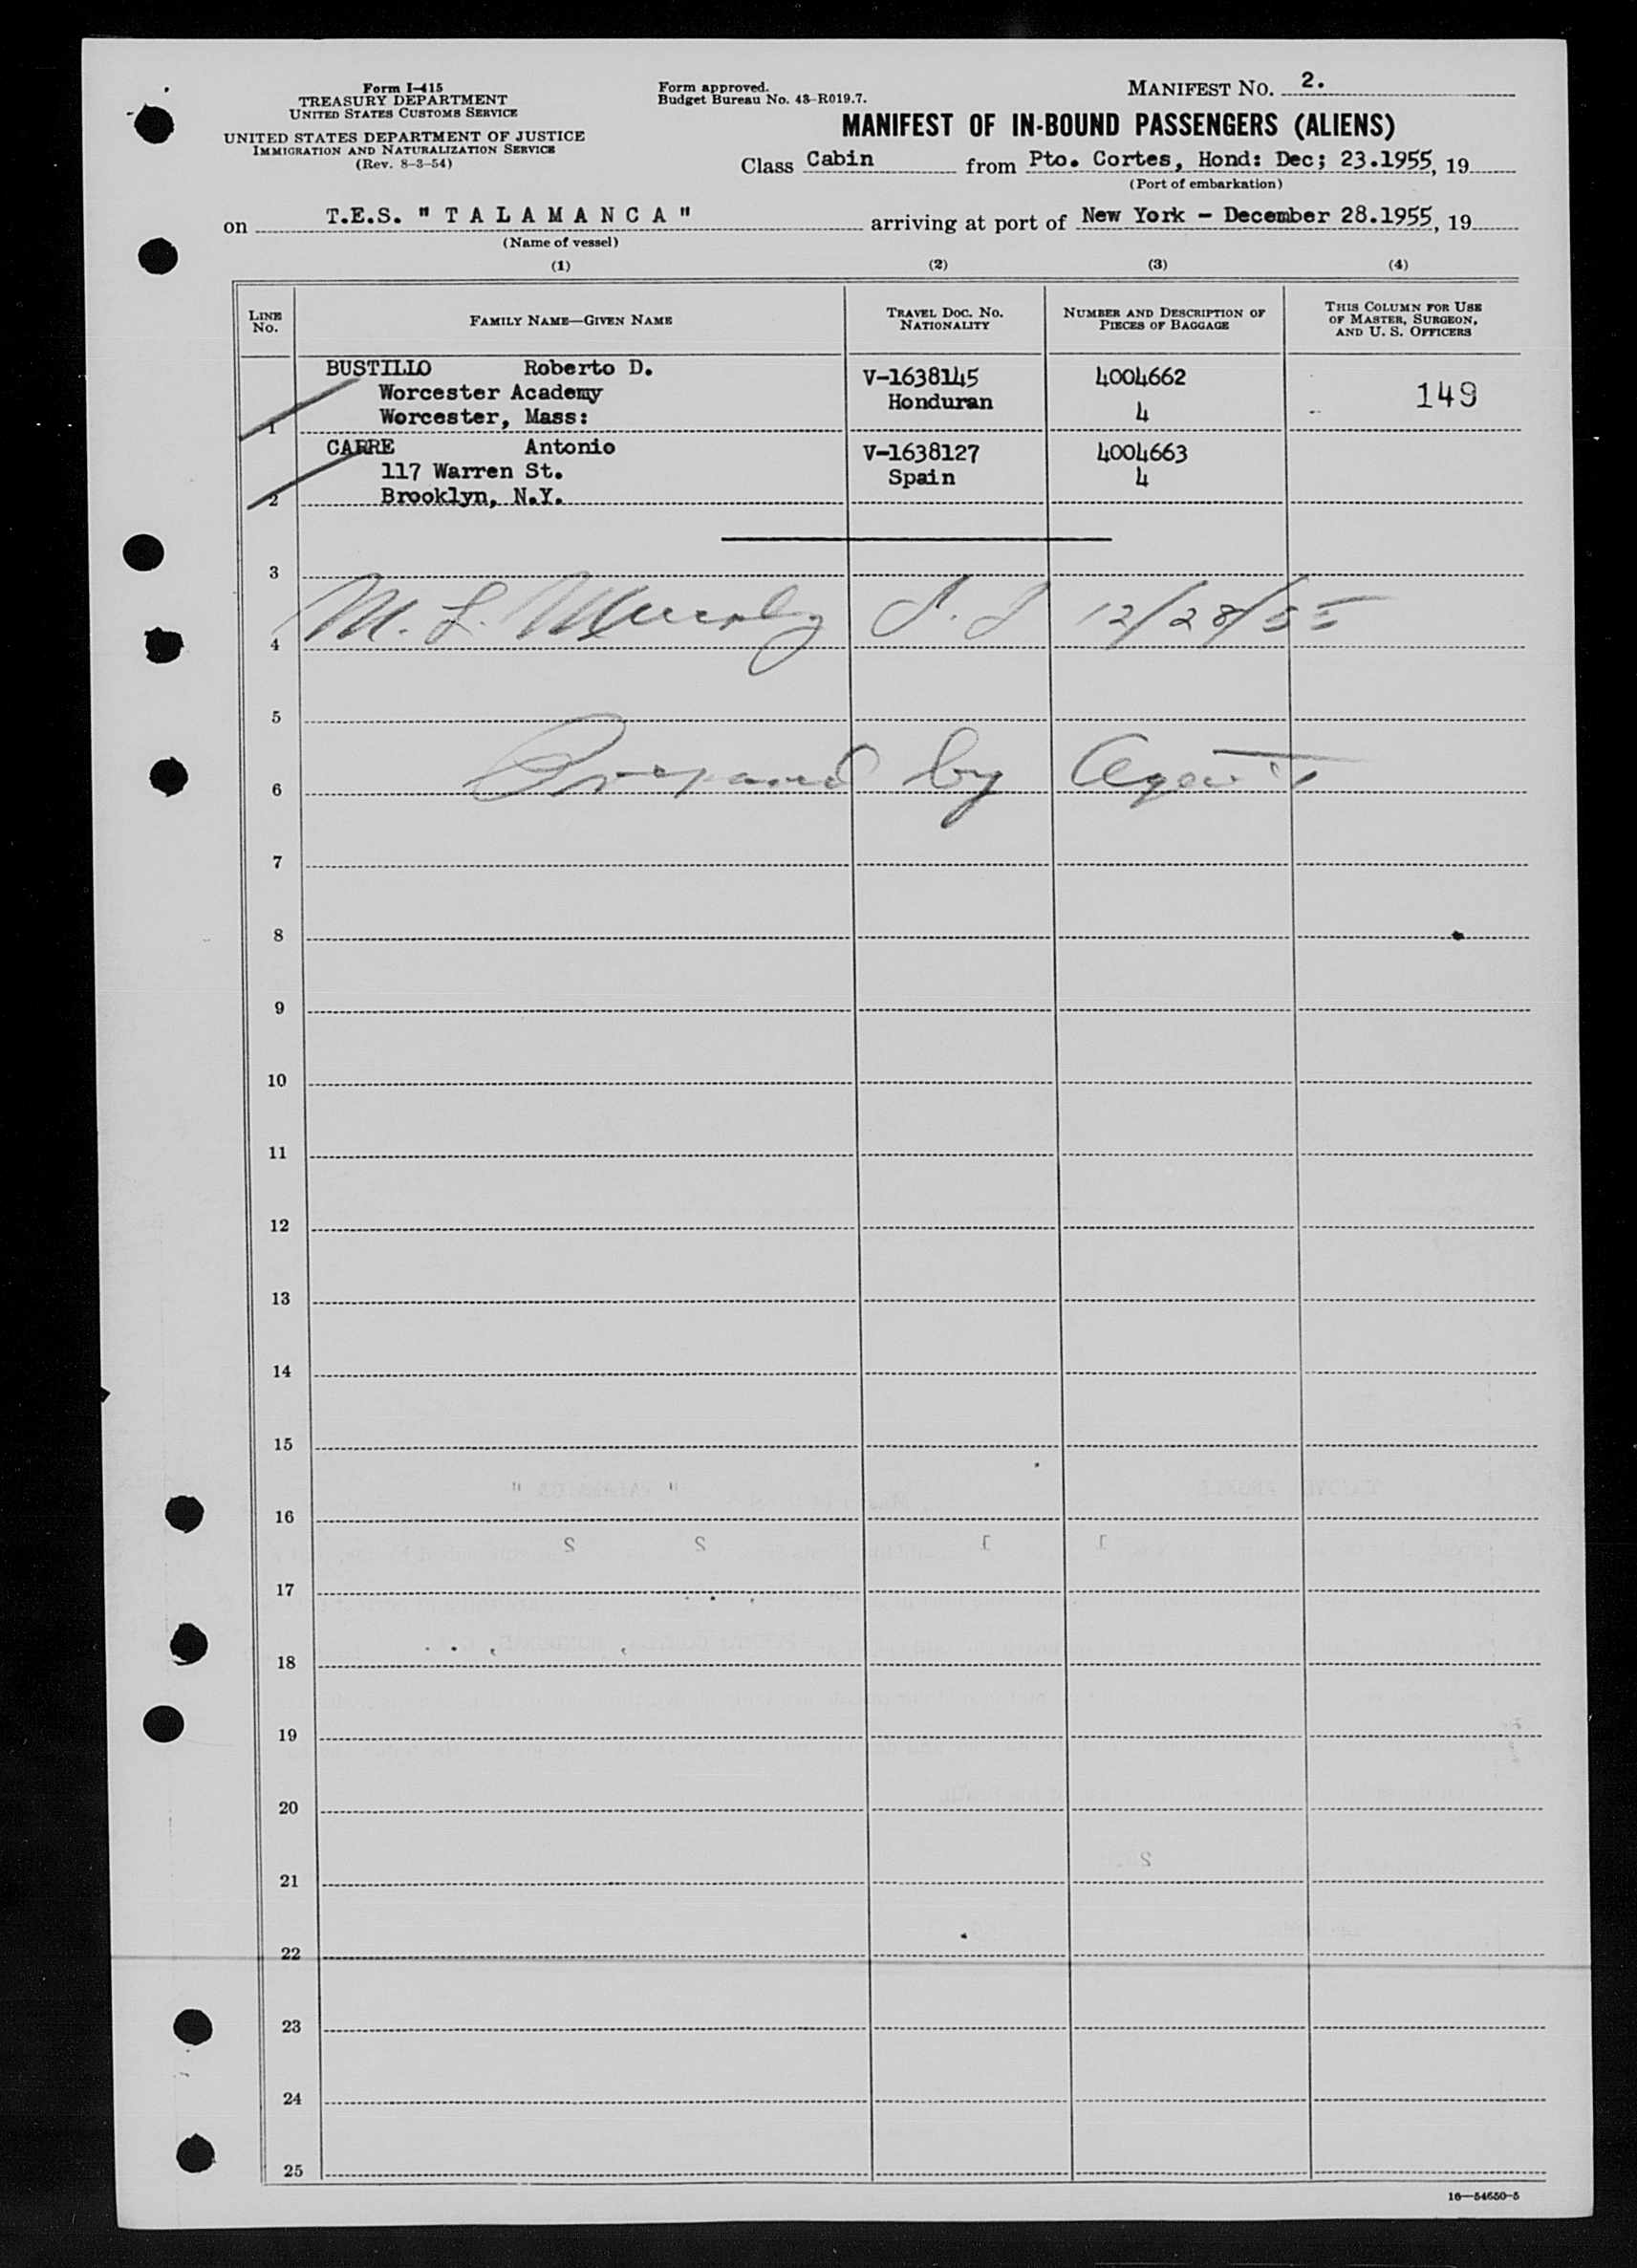 Form I-415
TREASURY DEPARTMENT
UNITED STATES CUSTOMS SERVICE
UNITED STATES DEPARTMENT OF JUSTICE
IMMIGRATION AND NATURALIZATION SERVICE
(Rev. 8-3-54)
Form approved.
Budget Bureau No. 43-R019.7.
MANIFEST NO. 2.
MANIFEST OF IN-BOUND PASSENGERS (ALIENS)
Class Cabin from Pto. Cortes, Hond: Dec; 23.1955, 19
(Port of embarkation)
on T.E.S. " T A L A M A N C A " arriving at port of New York - December 28.1955, 19
(Name of vessel)
(1) (2) (3) (4)
LINE NO.
FAMILY NAME—GIVEN NAME
TRAVEL DOC. NO.
NATIONALITY
NUMBER AND DESCRIPTION OF
PIECES OF BAGGAGE
THIS COLUMN FOR USE
OF MASTER, SURGEON,
AND U. S. OFFICERS
BUSTILLO Roberto D. V-1638145 4004662
Worcester Academy Honduran 4 149
1 Worcester, Mass:
CARRE Antonio V-1638127 4004663
117 Warren St. Spain 4
2 Brooklyn, N.Y.
3
M. L. Murphy 12/28/55
4
5
Prepared by Agent
6
7
8
9
10
11
12
13
14
15
16
17
18
19
20
21
22
23
24
25
16—54650-5